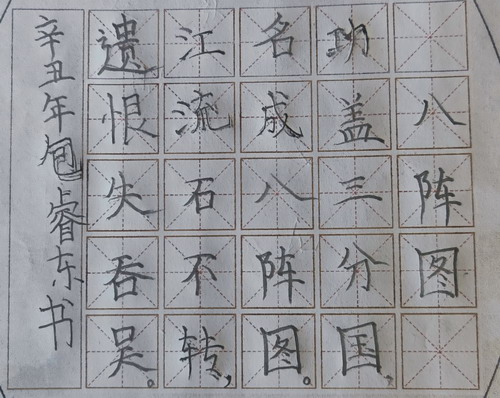 八阵图
功盖三分国,
名成八阵图。
江流石不转,
遗恨失吞吴。
辛丑年包睿东书